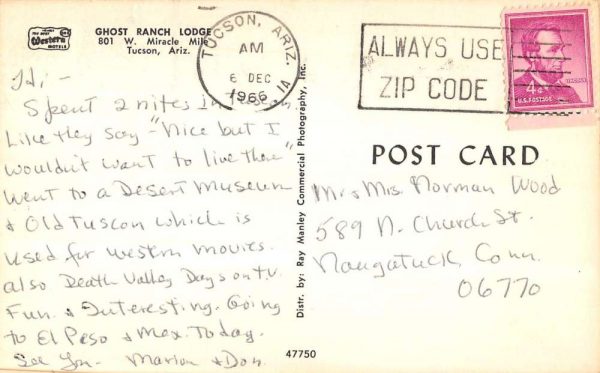 Western
MOTELS
GHOST RANCH LODGE
801 W. Miracle Mile
Tucson, Ariz.
TUCSON, ARIZ.
AM
6 DEC
1966
ALWAYS USE
ZIP CODE
4¢
U.S. POSTAGE
Hi, -
Spent 2 nites in
Like they say - "Nice but I
wouldn't want to live there"
Went to a Desert Museum
& Old Tuscon which is
used for western movies.
also Death Valley Days on t.v.
Fun & Interesting. Going
to El Paso & Mex. Today.
See You - Marion & Don.
Distr. by: Ray Manley Commercial Photography, Inc.
POST CARD
Mr & Mrs. Norman Wood
589 N. Church St.
Naugatuck, Conn.
06770
47750